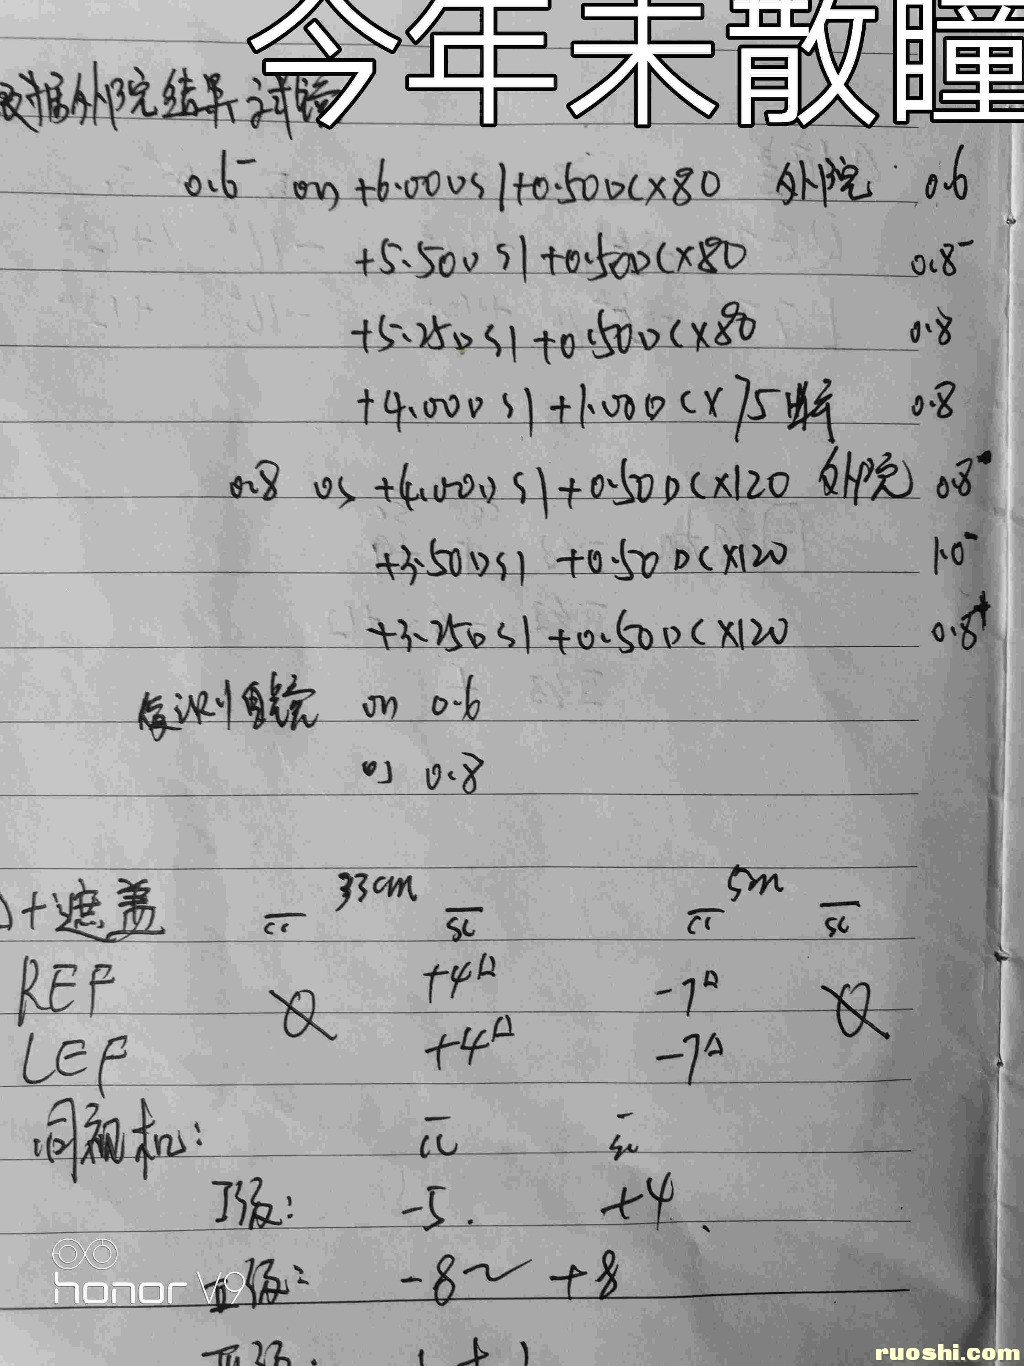 今年未散瞳
根据外院结果试验
0.6⁻ on +6.00DS/+0.50DC×80 外院 0.6
+5.50DS/+0.50DC×80 0.8⁻
+5.25DS/+0.50DC×80 0.8
+4.00DS/+1.00DC×75 0.8
0.8 os +4.00DS/+0.50DC×120 外院 0.8⁻
+3.50DS/+0.50DC×120 1.0⁻
+3.25DS/+0.50DC×120 0.8⁺
on 0.6
os 0.8
33cm 5m
+遮盖 cc sc cc sc
REF Ø +4△ -7△ Ø
LEF +4△ -7△
同视机: cc sc
I级: -5. +4.
II级: -8~+8
honor V9
ruoshi.com